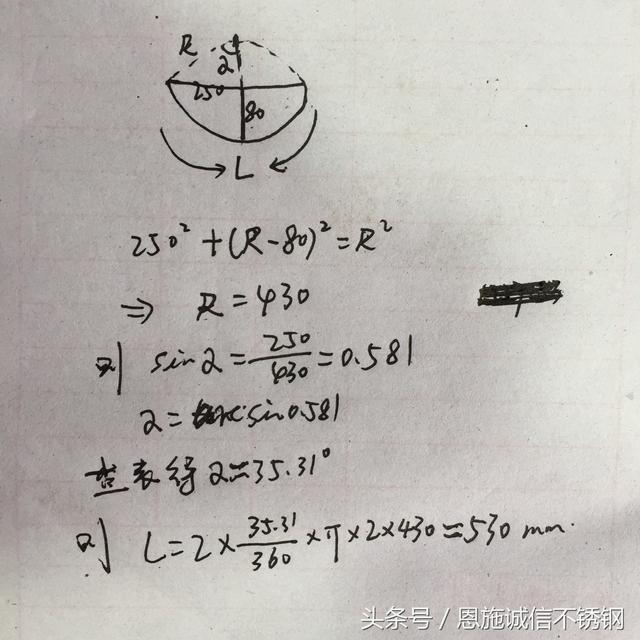 R
2
250
80
L
250² + (R-80)² = R²
⇒ R = 430
则 sin2 = 250/430 = 0.581
2 = arcsin0.581
查表得 2=35.31°
则 L = 2 × 35.31/360 × π × 2 × 430 ≈ 530 mm.
头条号 / 恩施诚信不锈钢